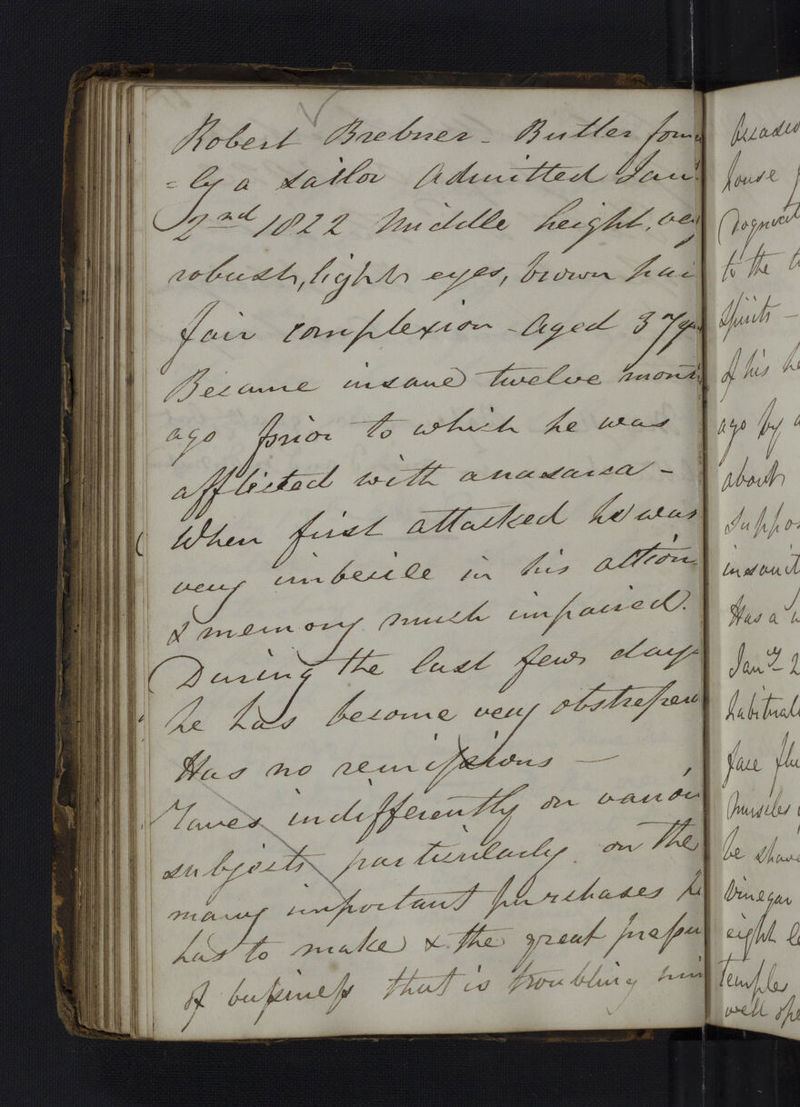 Robert Brebner - Butler form
=ly a sailor Admitted Jan
2nd 1822 Middle height, ve
robust, light eyes, brown hai
fair complexion - Aged 37 y
Became insane twelve month
ago prior to which he was
afflicted with anasarca -
When first attacked he was
very imbecile in his action
& memory much impaired.
During the last few days
he has become very obstreper
Has no remissions —
Raves indifferently on variou
subjects particularly on the
many important purchases he
has to make & the great pressu
of bussiness that is troubling him
house
to the
Spirits -
of his he
ago by a
about
Suppos
insanit
Has a
Jany 2
habitual
face flu
muscles
be shave
Vinegar
eight le
temples
well ope